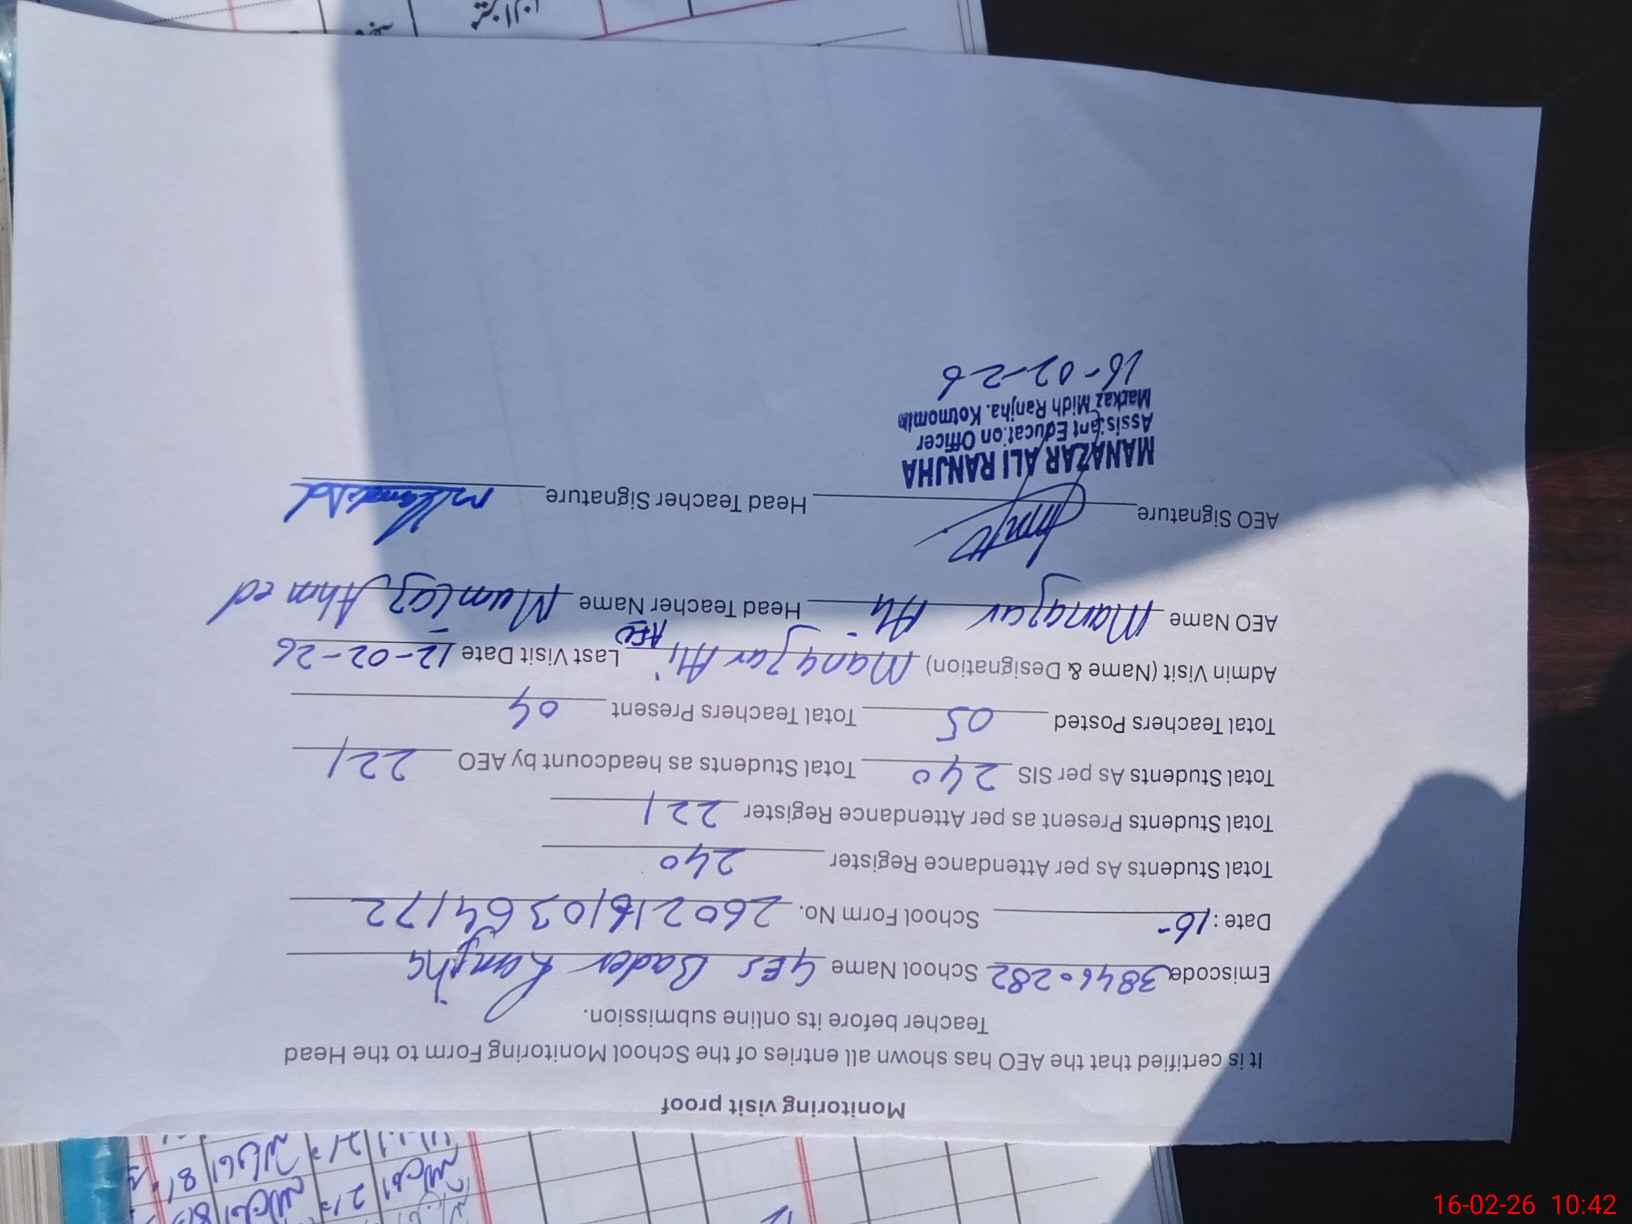 Monitoring visit proof
It is certified that the AEO has shown all entries of the School Monitoring Form to the Head
Teacher before its online submission.
Emiscode 38460282 School Name GES Bader Ranjha
Date : 16- School Form No. 26021610364172
Total Students As per Attendance Register 240
Total Students Present as per Attendance Register 221
Total Students As per SIS 240 Total Students as headcount by AEO 221
Total Teachers Posted 05 Total Teachers Present 04
Admin Visit (Name & Designation) Manazar Ali AEO Last Visit Date 12-02-26
AEO Name Manazar Ali Head Teacher Name Mumtaz Ahmed
AEO Signature Head Teacher Signature
MANAZAR ALI RANJHA
Assistant Education Officer
Markaz Midh Ranjha. Kotmomin
16-02-26
16-02-26 10:42